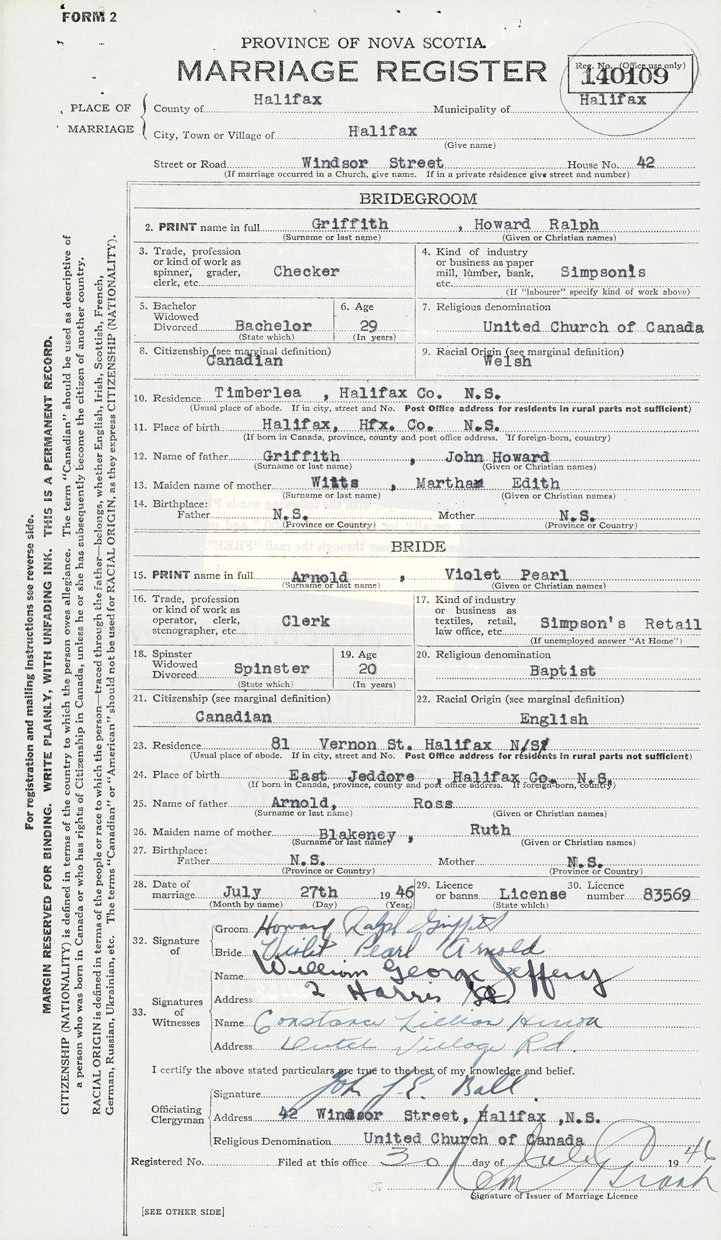 FORM 2
PROVINCE OF NOVA SCOTIA
MARRIAGE REGISTER
Reg. No. (Office use only)
140109
PLACE OF MARRIAGE
County of Halifax Municipality of Halifax
City, Town or Village of Halifax
(Give name)
Street or Road Windsor Street House No. 42
(If marriage occurred in a Church, give name. If in a private résidence give street and number)
BRIDEGROOM
2. PRINT name in full Griffith , Howard Ralph
(Surname or last name) (Given or Christian names)
3. Trade, profession or kind of work as spinner, grader, clerk, etc. Checker
4. Kind of industry or business as paper mill, lumber, bank, etc. Simpson's
(If "labourer" specify kind of work above)
5. Bachelor Widowed Divorced Bachelor
(State which)
6. Age 29
(In years)
7. Religious denomination
United Church of Canada
8. Citizenship (see marginal definition)
Canadian
9. Racial Origin (see marginal definition)
Welsh
10. Residence Timberlea , Halifax Co. N.S.
(Usual place of abode. If in city, street and No. Post Office address for residents in rural parts not sufficient)
11. Place of birth Halifax, Hfx. Co. N.S.
(If born in Canada, province, county and post office address. If foreign-born, country)
12. Name of father Griffith , John Howard
(Surname or last name) (Given or Christian names)
13. Maiden name of mother Witts , Martha Edith
(Surname or last name) (Given or Christian names)
14. Birthplace:
Father N.S. Mother N.S.
(Province or Country) (Province or Country)
BRIDE
15. PRINT name in full Arnold , Violet Pearl
(Surname or last name) (Given or Christian names)
16. Trade, profession or kind of work as operator, clerk, stenographer, etc. Clerk
17. Kind of industry or business as textiles, retail, law office, etc. Simpson's Retail
(If unemployed answer "At Home")
18. Spinster Widowed Divorced Spinster
(State which)
19. Age 20
(In years)
20. Religious denomination
Baptist
21. Citizenship (see marginal definition)
Canadian
22. Racial Origin (see marginal definition)
English
23. Residence 81 Vernon St. Halifax N/S/
(Usual place of abode. If in city, street and No. Post Office address for residents in rural parts not sufficient)
24. Place of birth East Jeddore , Halifax Co. N.S.
(If born in Canada, province, county and post office address. If foreign-born, country)
25. Name of father Arnold, Ross
(Surname or last name) (Given or Christian names)
26. Maiden name of mother Blakeney , Ruth
(Surname or last name) (Given or Christian names)
27. Birthplace:
Father N.S. Mother N.S.
(Province or Country) (Province or Country)
28. Date of marriage July 27th 1946
(Month by name) (Day) (Year)
29. Licence or banns License
(State which)
30. Licence number 83569
32. Signature of
Groom Howard Ralph Griffith
Bride Violet Pearl Arnold
33. Signatures of Witnesses
Name William George Jeffery
Address 2 Harris St
Name Constance Lillian
Address Dutch Village Rd.
I certify the above stated particulars are true to the best of my knowledge and belief.
Officiating Clergyman
Signature John L.E. Ball
Address 42 Windsor Street, Halifax ,N.S.
Religious Denomination United Church of Canada
Registered No. Filed at this office 30 day of July 1946
Signature of Issuer of Marriage Licence
[SEE OTHER SIDE]
For registration and mailing instructions see reverse side.
MARGIN RESERVED FOR BINDING. WRITE PLAINLY, WITH UNFADING INK. THIS IS A PERMANENT RECORD.
CITIZENSHIP (NATIONALITY) is defined in terms of the country to which the person owes allegiance. The term "Canadian" should be used as descriptive of
a person who was born in Canada or who has rights of Citizenship in Canada, unless he or she has subsequently become the citizen of another country.
RACIAL ORIGIN is defined in terms of the people or race to which the person—traced through the father—belongs, whether English, Irish, Scottish, French,
German, Russian, Ukrainian, etc. The terms "Canadian" or "American" should not be used for RACIAL ORIGIN, as they express CITIZENSHIP (NATIONALITY).